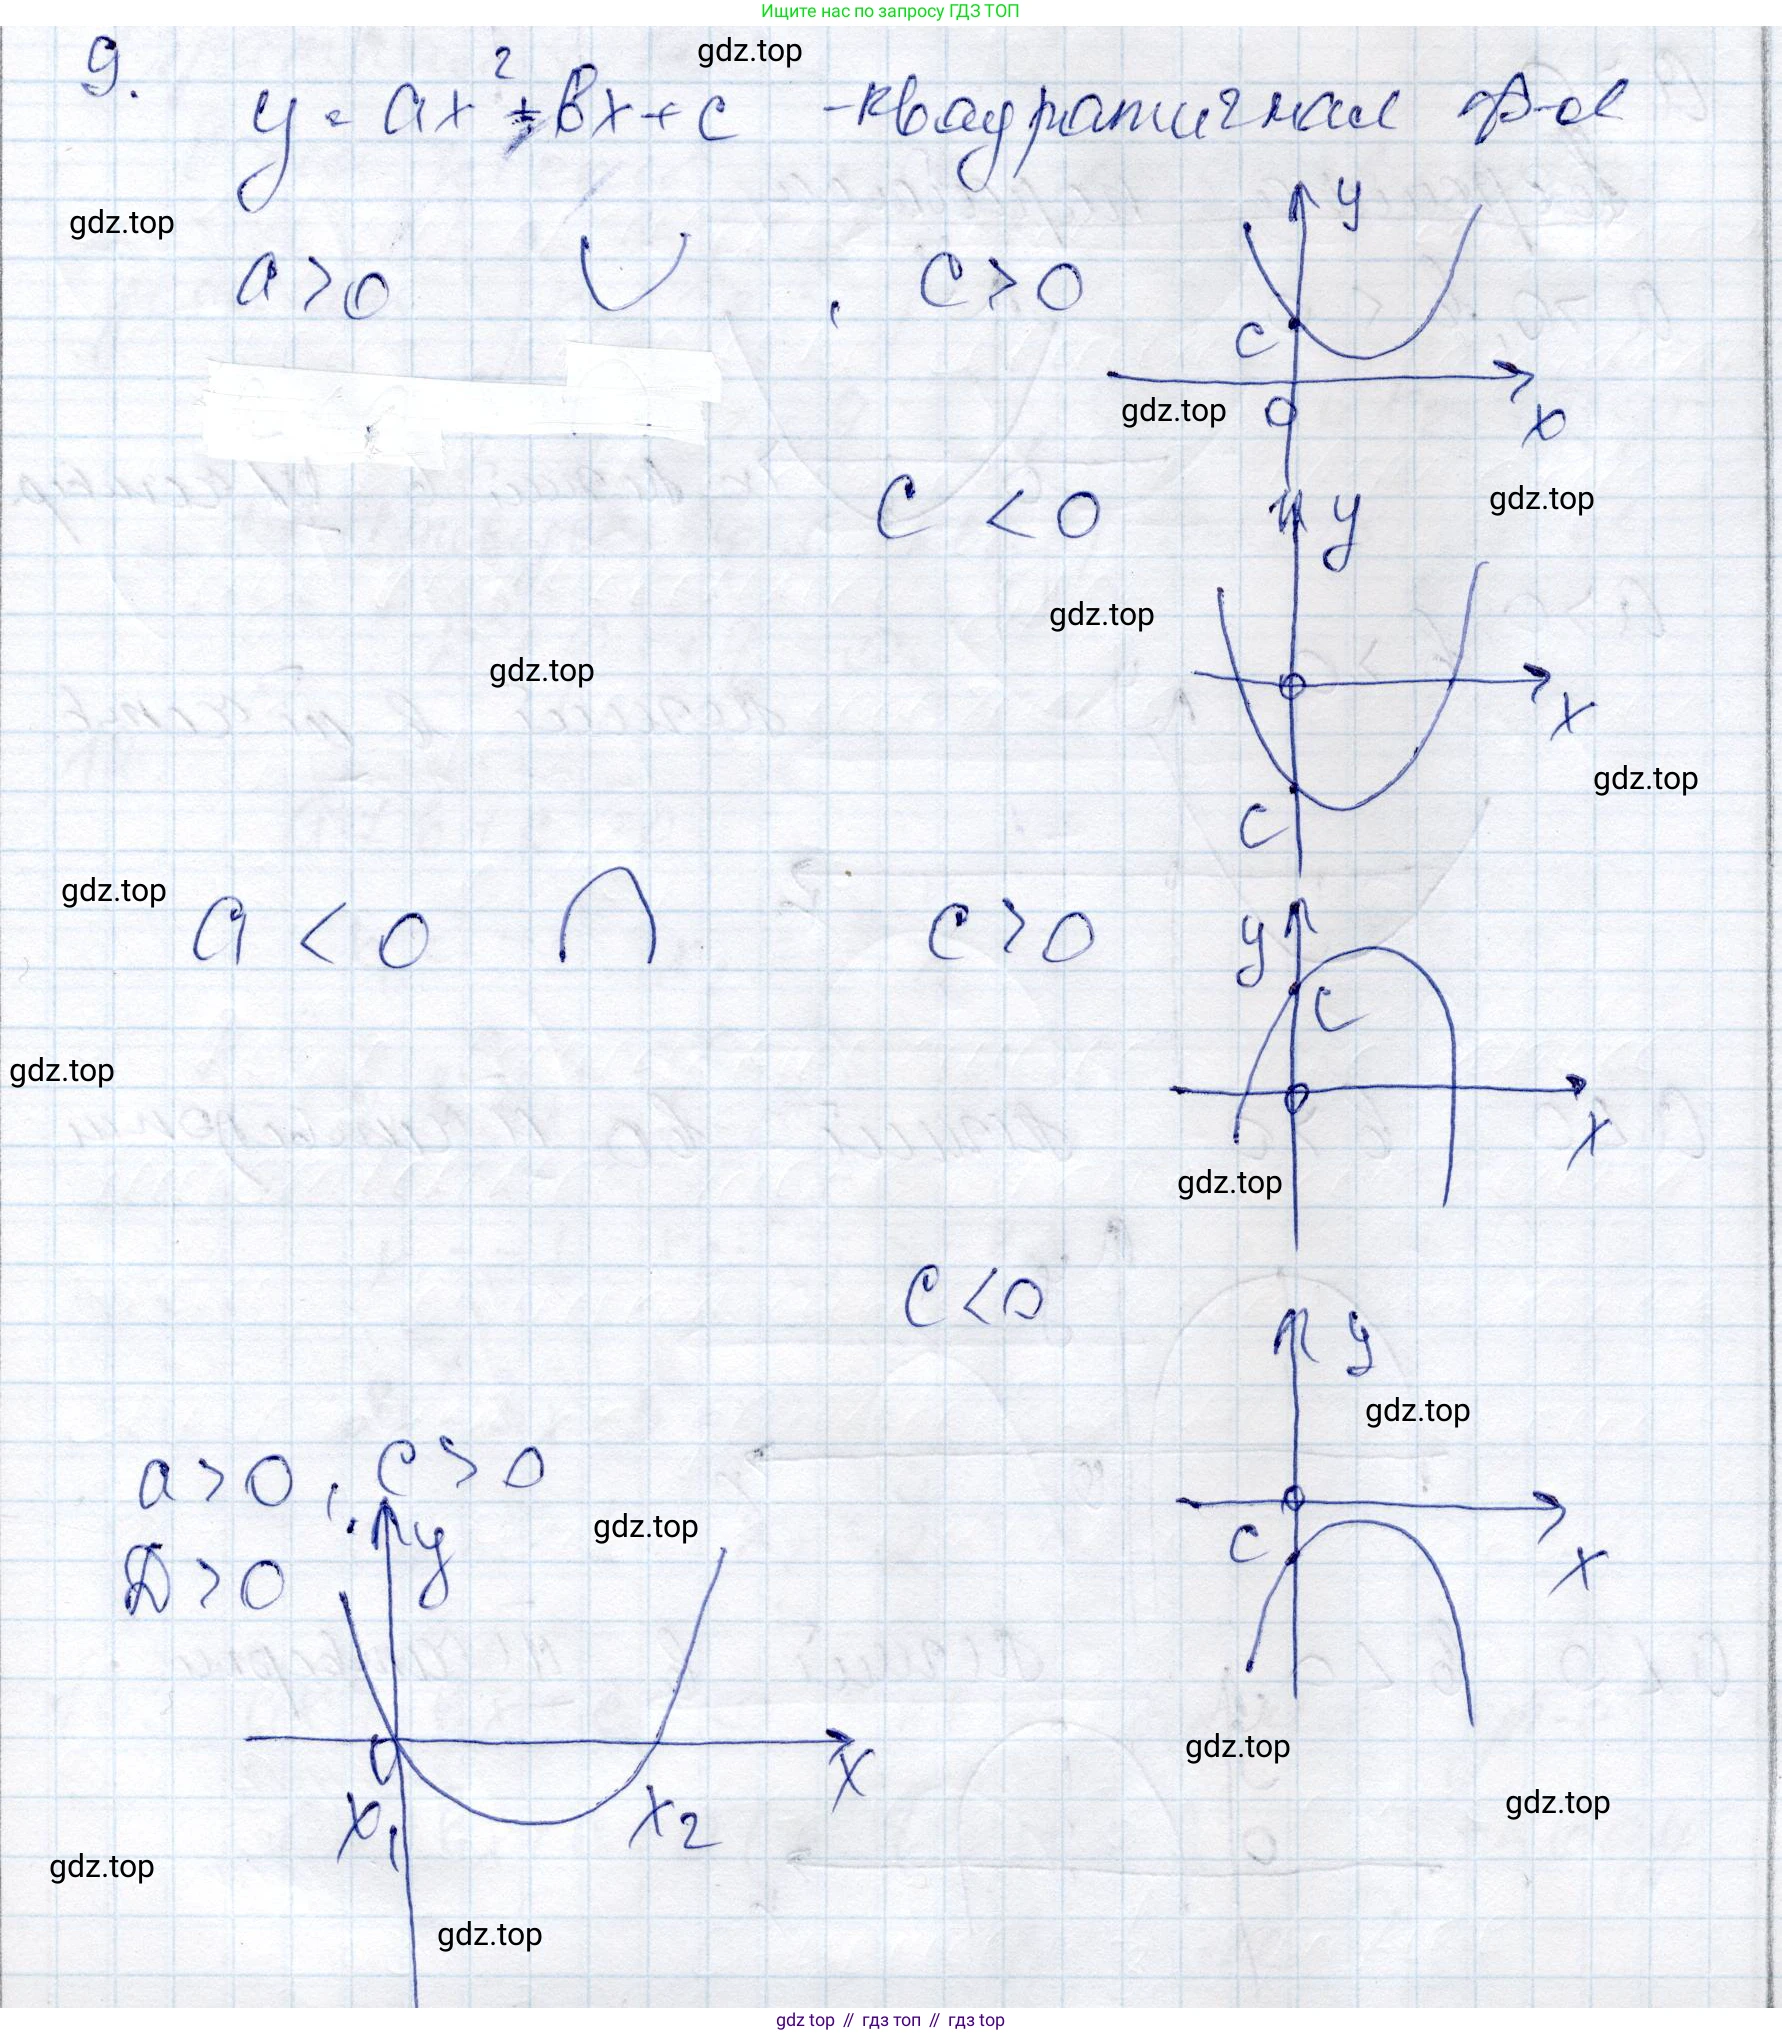 Ищите нас по запросу ГДЗ ТОП
9.
gdz.top
y = ax² + bx + c - квадратичная ф-я
gdz.top
a > 0 , c > 0
y
c
gdz.top
0
x
c < 0
y
gdz.top
gdz.top
gdz.top
0
x
gdz.top
c
gdz.top
a < 0 c > 0
y
c
gdz.top
0
x
gdz.top
c < 0
y
gdz.top
a > 0, c > 0
D > 0
y
gdz.top
0
c
x
0
x
x₁ x₂
gdz.top
gdz.top
gdz.top
gdz.top
gdz top // гдз топ // гдз top